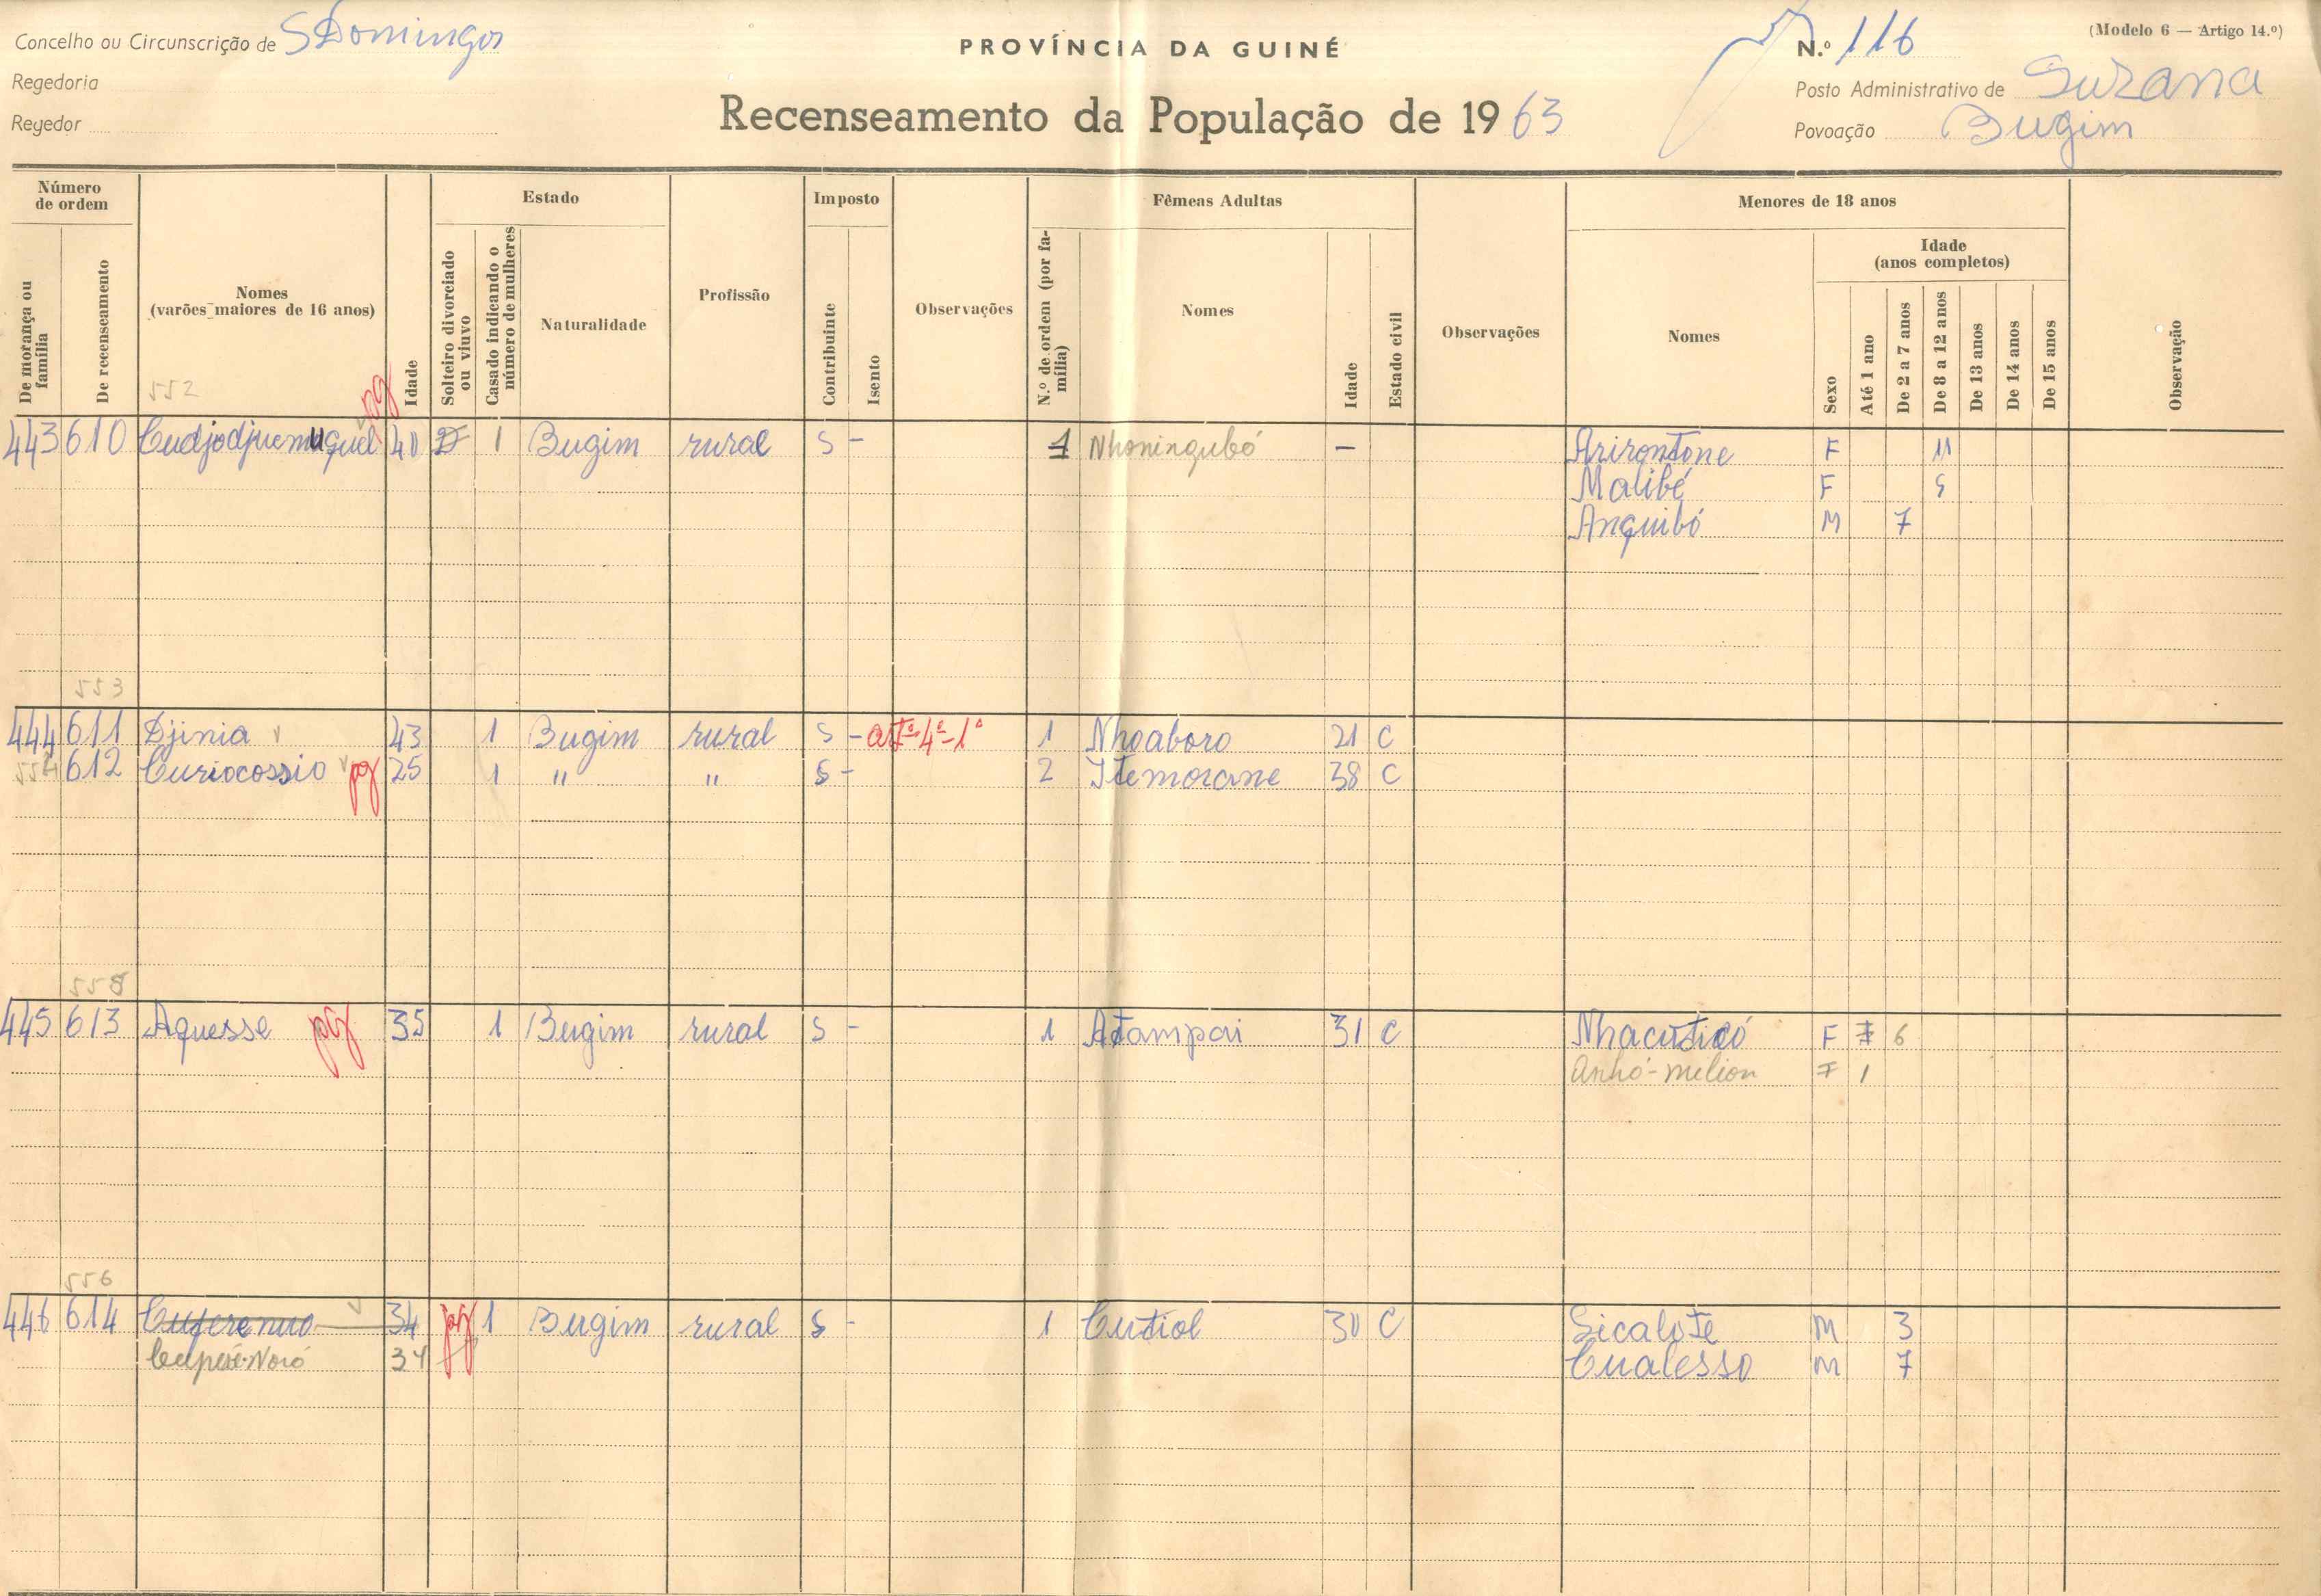 Concelho ou Circunscrição de S Domingos
PROVÍNCIA DA GUINÉ
N.º 116
(Modelo 6 — Artigo 14.º)
Regedoria
Posto Administrativo de Suzana
Regedor
Recenseamento da População de 1963
Povoação Bugim
Número de ordem
De morança ou família
De recenseamento
Nomes
(varões maiores de 16 anos)
Idade
Estado
Solteiro divorciado ou viuvo
Casado indicando o número de mulheres
Naturalidade
Profissão
Imposto
Contribuinte
Isento
Observações
Fêmeas Adultas
N.º de ordem (por família)
Nomes
Idade
Estado civil
Observações
Menores de 18 anos
Nomes
Sexo
Idade
(anos completos)
Até 1 ano
De 2 a 7 anos
De 8 a 12 anos
De 13 anos
De 14 anos
De 15 anos
Observação
552
pg
443 610 40 1 Bugim rural S - 1 Nhoningubó — Arirontone F 11
Malibé F
Anquibó M 7
553
444 611 Djinia 43 1 Bugim rural S - artº 4º-1º 1 Nhoaboro 21 C
554 612 Curiocossio pg 25 1 " " S - 2 Itemorane 38 C
558
445 613 Aquesse pg 35 1 Bugim rural S - 1 Atampai 31 C Nhacuticó F 6
Anhó-milion F 1
556
446 614 34 pg 1 Bugim rural S - 1 Cutiol 30 C Sicalote M 3
34 Cualesso M 7